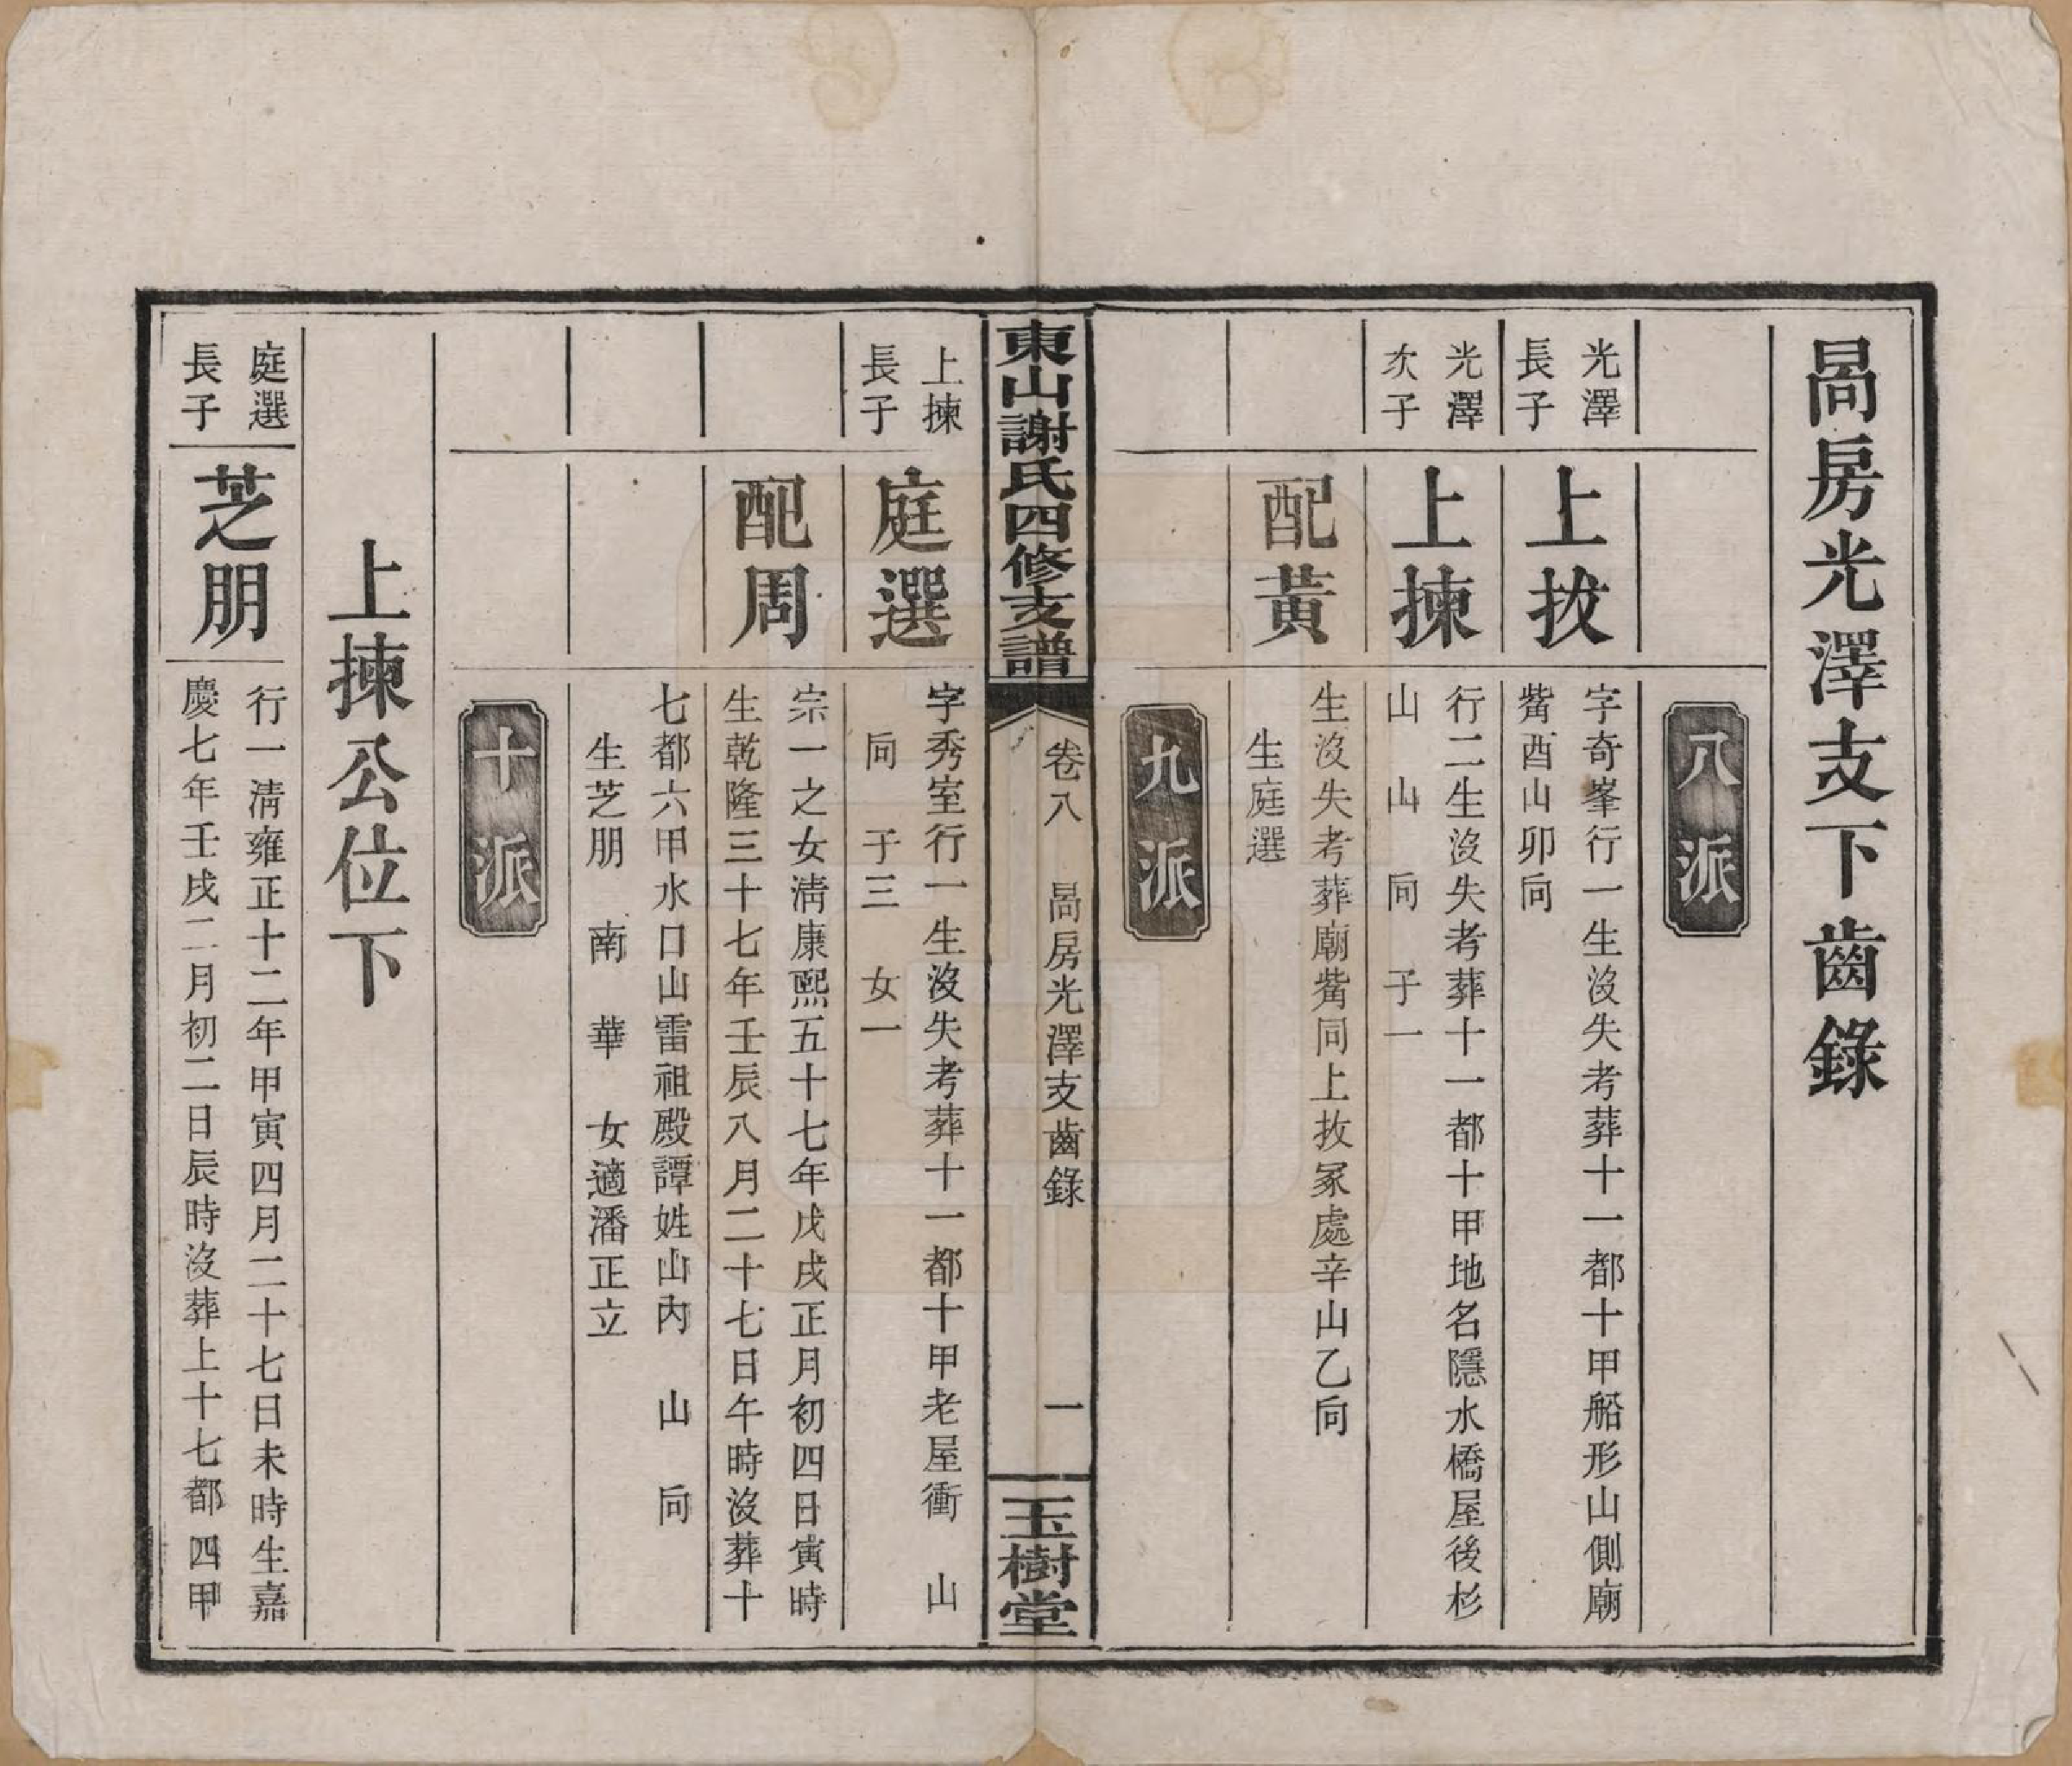 咼房光澤支下齒錄
八派
光澤
長子
上拔
字奇峯行一生沒失考葬十一都十甲船形山側廟
觜酉山卯向
光澤
次子
上揀
行二生沒失考葬十一都十甲地名隱水橋屋後杉
山　山　向　子一
配黃
生沒失考葬廟觜同上拔冢處辛山乙向
生庭選
九派
東山謝氏四修支譜
卷八　咼房光澤支齒錄
一
玉樹堂
上揀
長子
庭選
字秀室行一生沒失考葬十一都十甲老屋衝　山
向　子三　女一
配周
宗一之女淸康熙五十七年戊戌正月初四日寅時
生乾隆三十七年壬辰八月二十七日午時沒葬十
七都六甲水口山雷祖殿譚姓山內　山　向
生芝朋　南　華　女適潘正立
十派
上揀公位下
庭選
長子
芝朋
行一淸雍正十二年甲寅四月二十七日未時生嘉
慶七年壬戌二月初二日辰時沒葬上十七都四甲